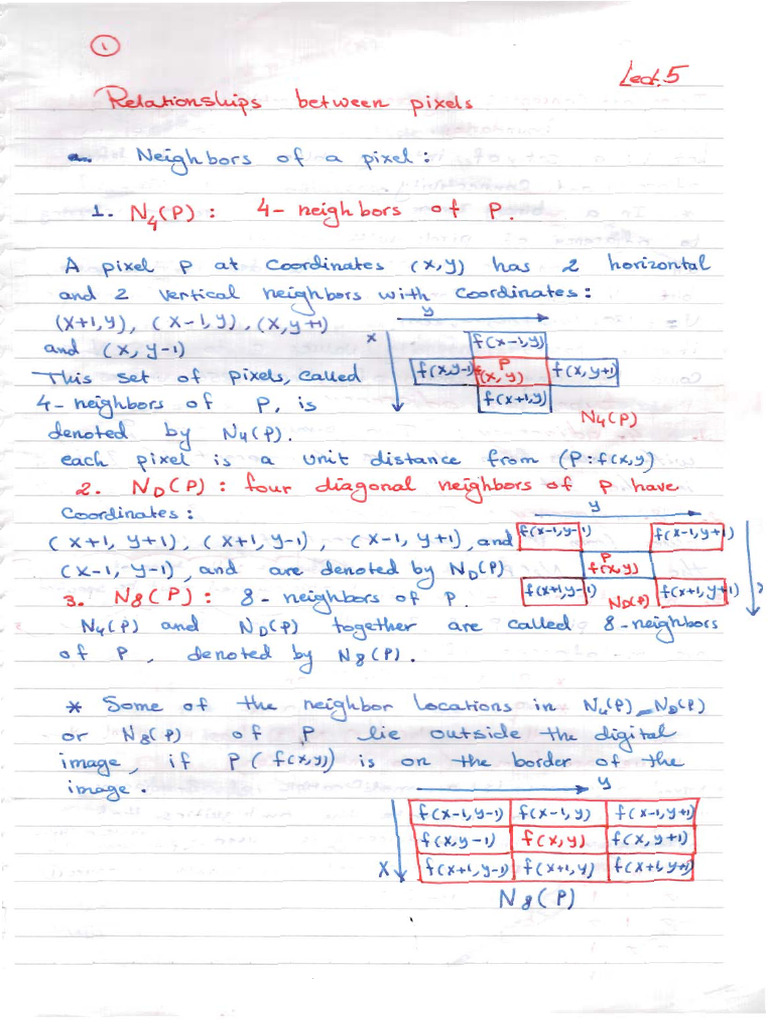 1
Lect.5
Relationships between pixels
Neighbors of a pixel:
1. N4(P): 4-neighbors of P.
A pixel P at coordinates (x,y) has 2 horizontal
and 2 vertical neighbors with coordinates:
(x+1,y), (x-1,y), (x,y+1)
and (x, y-1)
This set of pixels, called
4-neighbors of P, is
denoted by N4(P).
y
x
f(x-1,y)
f(x,y-1) P (x,y) f(x,y+1)
f(x+1,y)
N4(P)
each pixel is a unit distance from (P:f(x,y)
2. ND(P): four diagonal neighbors of P have
coordinates:
(x+1, y+1), (x+1,y-1), (x-1, y+1), and
(x-1, y-1), and are denoted by ND(P)
y
f(x-1,y-1) f(x-1,y+1)
P
f(x,y)
f(x+1,y-1) ND(P) f(x+1,y+1)
x
3. N8(P): 8-neighbors of P.
N4(P) and ND(P) together are called 8-neighbors
of P, denoted by N8(P).
* Some of the neighbor locations in N4(P) ND(P)
or N8(P) of P lie outside the digital
image, if P(f(x,y)) is on the border of the
image.
y
x
f(x-1,y-1) f(x-1,y) f(x-1,y+1)
f(x,y-1) f(x,y) f(x,y+1)
f(x+1,y-1) f(x+1,y) f(x+1,y+1)
N8(P)